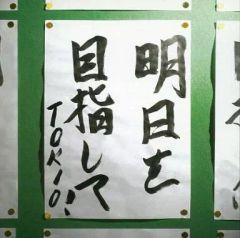 明日を
目指して!
TOKIO